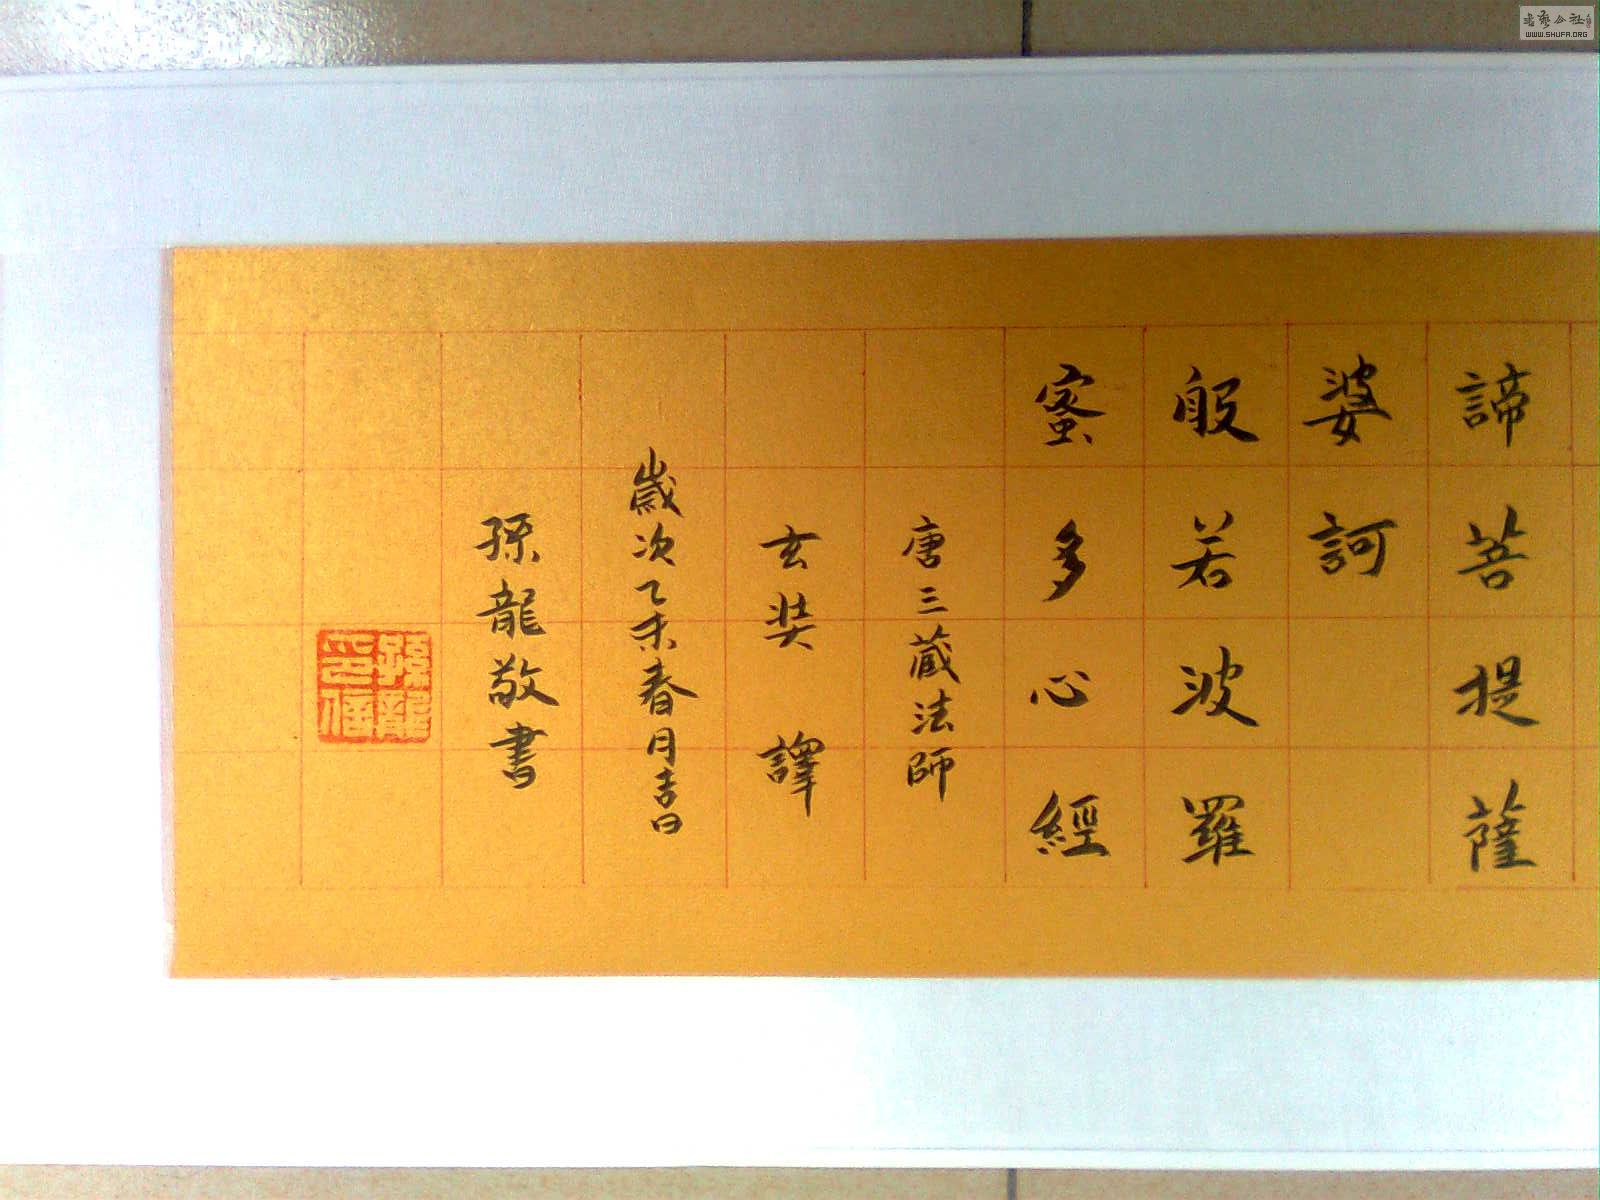 諦菩提薩
婆訶
般若波羅
蜜多心經
唐三藏法師
玄奘譯
歲次乙未春月吉日
孫龍敬書
孫龍
印信
書藝公社
WWW.SHUFA.ORG